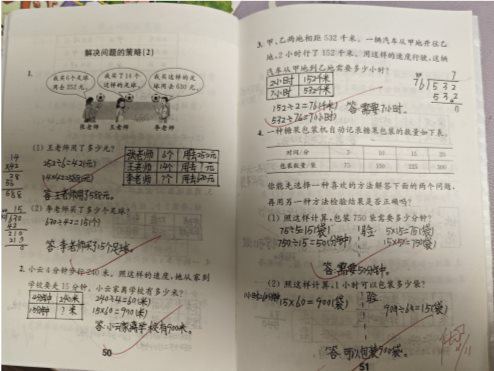 解决问题的策略(2)
1.
我买6个足球
用去252元。
我买了14个
这样的足球。
我买这样的足
球用去630元。
张老师 王老师 李老师
(1) 王老师用了多少元?
252÷6=42(元)
14×42=588(元)
答:王老师用了588元。
张老师 6个 用去252元
王老师 14个
李老师
14
×42
28
56
588
(2) 李老师买了多少个足球?
630÷42=15(个)
答:李老师买了15个足球。
2. 小云4分钟步行240米。照这样的速度,她从家到
学校要走15分钟。小云家离学校有多少米?
4分钟 240米
15分钟 ?米
240÷4=60(米)
15×60=900(米)
答:小云家离学校有900米。
50
3. 甲、乙两地相距532千米。一辆汽车从甲地开往乙
地,2小时行了152千米。用这样的速度行驶,这辆
汽车从甲地到乙地需要多少小时?
2小时 152千米
?小时 532千米
152÷2=76(千米)
532÷76=7(小时)
答:需要7小时。
7
76 532
532
0
4. 一种糖果包装机自动记录糖果包装的数量如下表。
时间/分 3 10 15 20
包装数量/袋 150 225 300
你能先选择一种喜欢的方法解答下面的两个问题,
再用另一种方法检验结果是否正确吗?
(1) 照这样计算,包装750袋需要多少分钟?
75÷5=15(袋)
750÷15=50(分钟)
验:
5×15=75(袋)
15×50=750(袋)
答:需要50分钟。
(2) 照这样计算,1小时可以包装多少袋?
1小时=60分钟
15×60=900(袋)
验
900÷60=15(袋)
答:可以包装900袋。
51